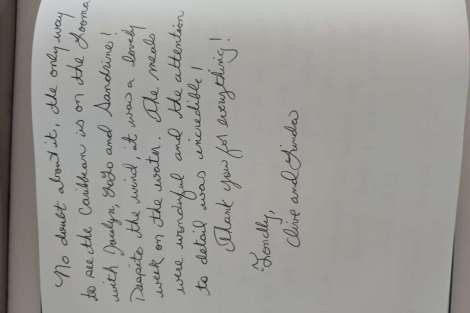 No doubt about it, the only way
to see the Caribbean is on the Looma
with Jocelyn, and Sandrine!
Despite the wind, it was a lovely
week on the water. The meals
were wonderful and the attention
to detail was incredible!
Thank you for everything!
Fondly,
Clive and Linda